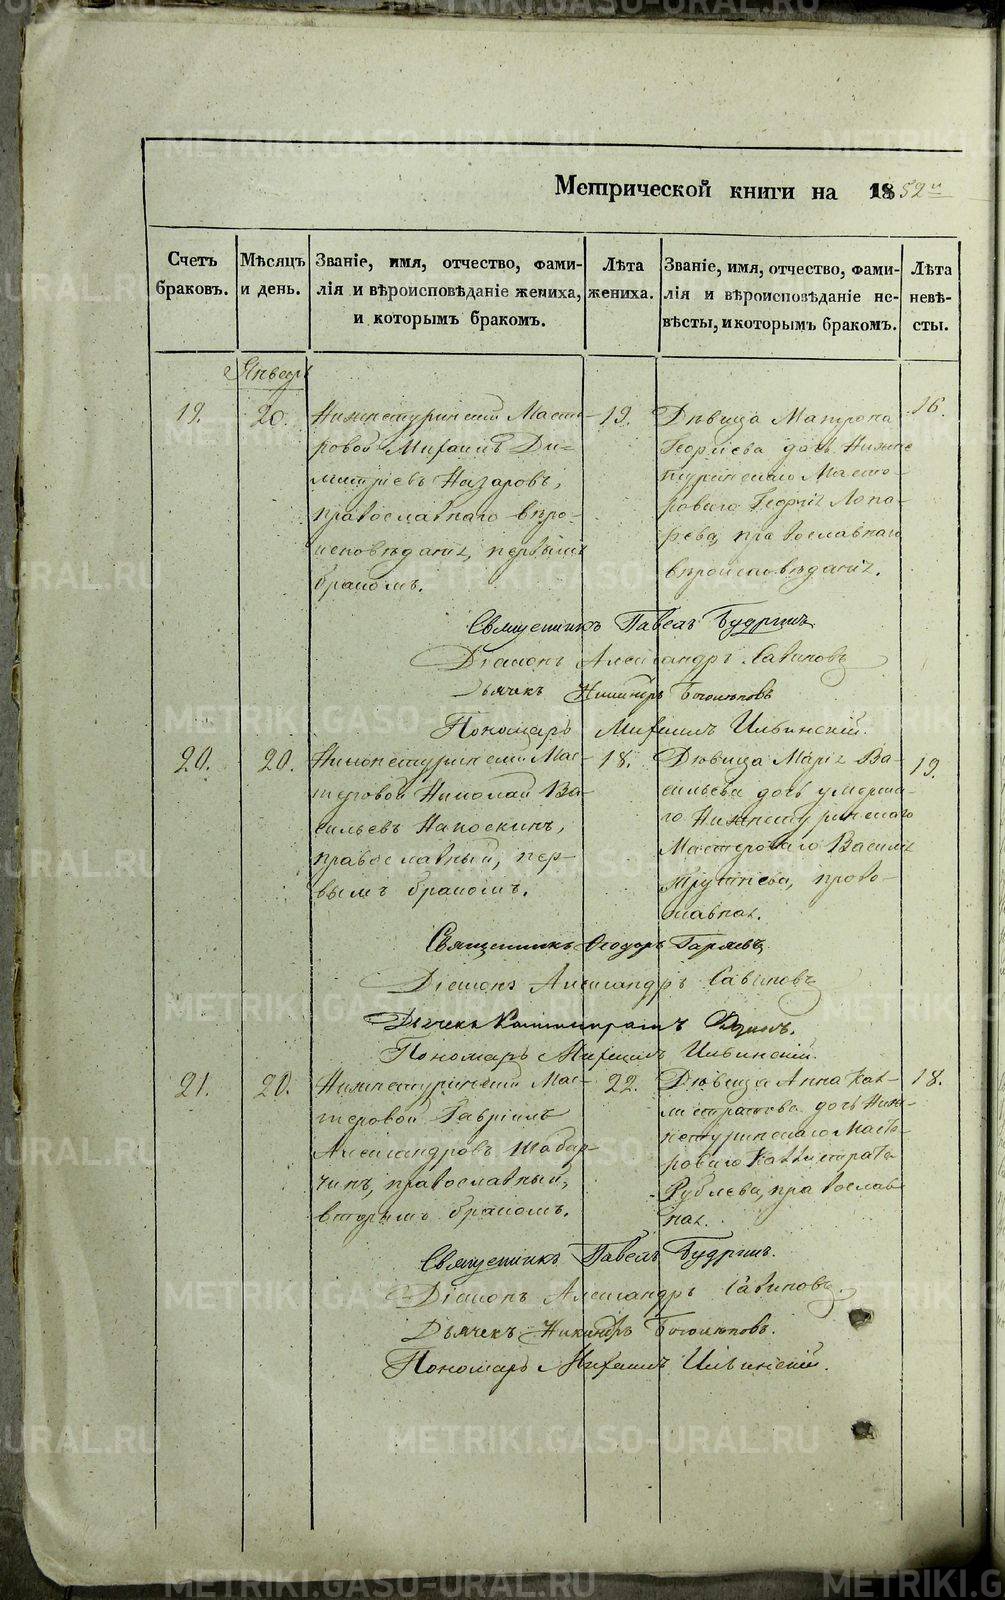 Метрической книги на 1852й
Счетъ браковъ.
Мѣсяцъ и день.
Званіе, имя, отчество, фамилія и вѣроисповѣданіе жениха, и которымъ бракомъ.
Лѣта жениха.
Званіе, имя, отчество, фамилія и вѣроисповѣданіе невѣсты, и которымъ бракомъ.
Лѣта невѣсты.
Январь
19.
20.
Нижнетуринскій Масте-
ровой Михаилъ Ди-
митріевъ Назаровъ,
православнаго вѣро-
исповѣданія, первымъ
бракомъ.
19.
Дѣвица Матрона
Георгіева дочь Нижне
туринскаго Масте-
роваго Георгія Лопа-
рева, православнаго
вѣроисповѣданія.
16.
Священникъ Павелъ Будринъ
Діаконъ Александръ Савиновъ
Дьячекъ Никандръ Боголѣповъ
Пономарь Михаилъ Ильинскій.
20.
20.
Нижнетуринскій Мас-
теровой Николай Ва-
сильевъ Папоскинъ,
православный, пер-
вымъ бракомъ.
18.
Дѣвица Марія Ва-
сильева дочь умерша-
го Нижнетуринскаго
Мастероваго Василія
право-
славная.
19.
Священникъ Ѳеодоръ Гаряевъ
Діаконъ Александръ Савиновъ
Дьячекъ
Пономарь Михаилъ Ильинскій.
21.
20.
Нижнетуринскій Мас-
теровой Гавріилъ
Александровъ Шабар-
чинъ, православный,
вторымъ бракомъ.
22.
Дѣвица Анна Кал-
листратова дочь Ниж-
нетуринскаго Масте-
роваго Каллистрата
Рублева, православ
ная.
18.
Священникъ Павелъ Будринъ.
Діаконъ Александръ Савиновъ.
Дьячекъ Никандръ Боголѣповъ.
Пономарь Михаилъ Ильинскій.
METRIKI.GASO-URAL.RU